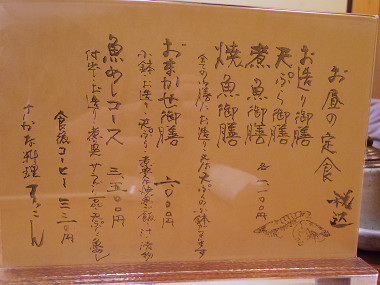 お昼の定食 税込
お造り御膳
天ぷら御膳
煮魚御膳
焼魚御膳
各二、一〇〇円
全ての御膳に、お造り又は天ぷらの小鉢が
おまかせ御膳 二、六〇〇円
小鉢・お造り・天ぷら・煮魚又は焼魚・飯・汁・漬物
魚めしコース 三、五〇〇円
付出し・お造り・煮魚
食後コーヒー 三二〇円
さかな料理